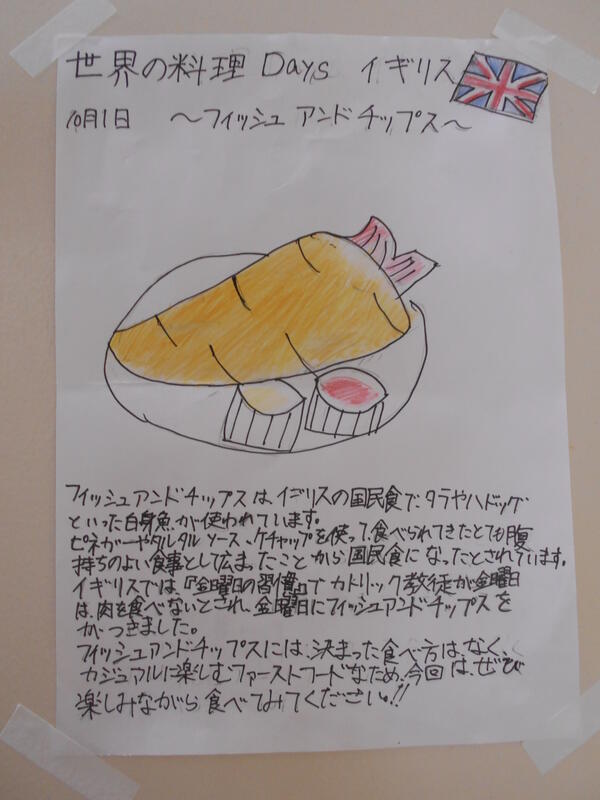 世界の料理 Days イギリス
10月1日 〜フィッシュ アンド チップス〜
フィッシュアンドチップスは、イギリスの国民食で、タラやハドック
といった白身魚が使われています。
ビネガーやタルタルソース、ケチャップを使って食べられてきたとても腹
持ちのよい食事として広まったことから国民食になったとされています。
イギリスでは、『金曜日の習慣』でカトリック教徒が金曜日
は、肉を食べないとされ、金曜日にフィッシュアンドチップスを
がつきました。
フィッシュアンドチップスには、決まった食べ方は、なく、
カジュアルに楽しむファーストフードなため、今回は、ぜひ
楽しみながら食べてみてください。!!